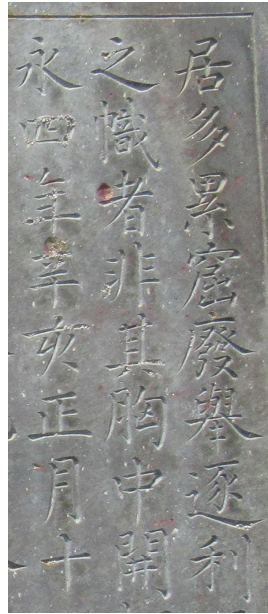 居多累窟廢舉逐利
之幟者非其胸中開
永四年辛亥正月十